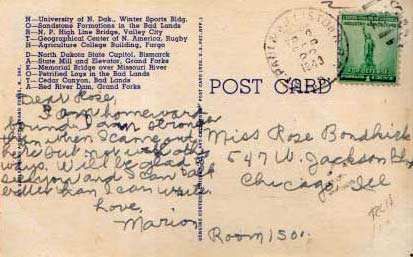 N—University of N. Dak., Winter Sports Bldg.
O—Sandstone Formations in the Bad Lands
R—N. P. High Line Bridge, Valley City
T—Geographical Center of N. America, Rugby
H—Agriculture College Building, Fargo
D—North Dakota State Capitol, Bismarck
A—State Mill and Elevator, Grand Forks
K—Memorial Bridge over Missouri River
O—Petrified Logs in the Bad Lands
T—Cedar Canyon, Bad Lands
A—Red River Dam, Grand Forks
POST CARD
Dear Rose,
I am homeward
bound. I am stronger
than when I came out
here but not well
I will be glad to
see you and I can talk
better than I can write
Love,
Marion
Miss Rose
547 W. Jackson
Chicago, Ill
Room 1501.